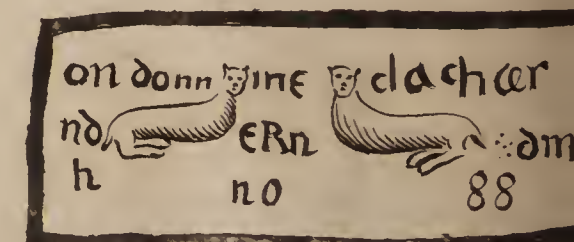 on donn ine clachar
nd ERn dm
h no 88